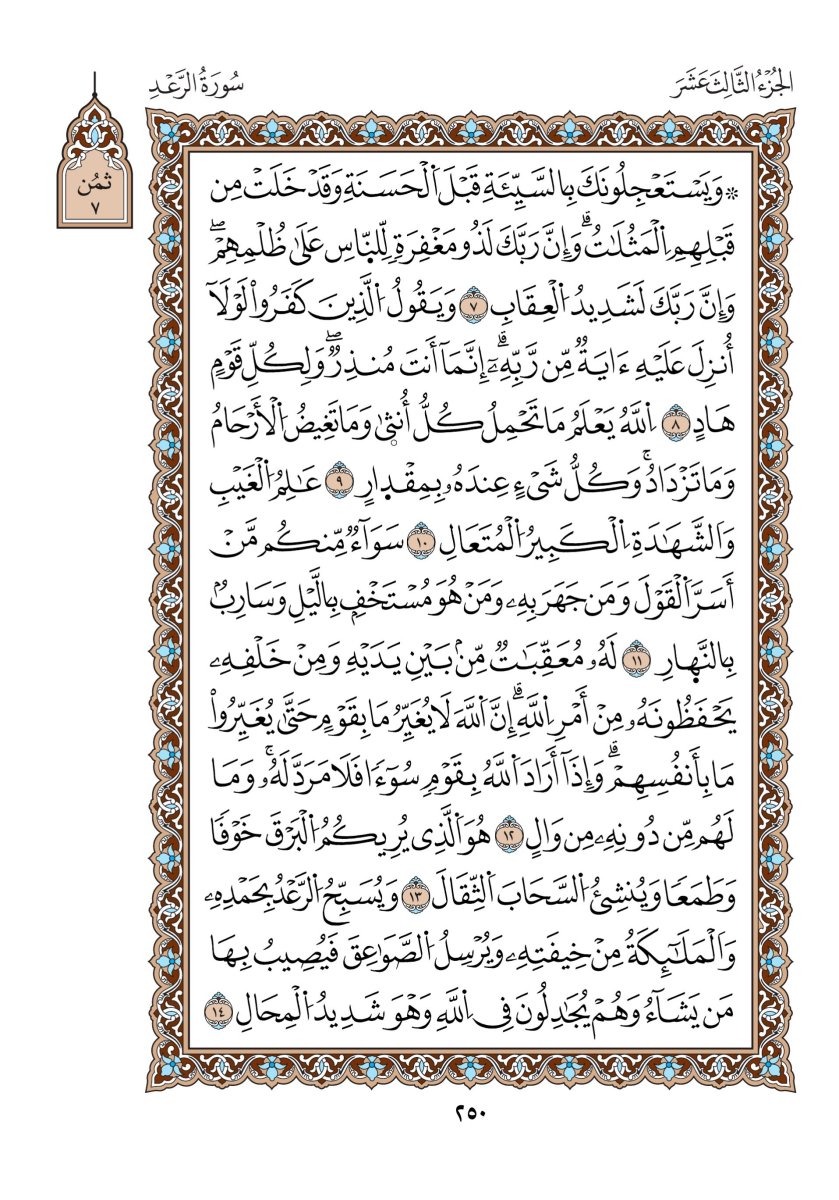 الجُزْءُ الثَّالِثَ عَشَرَ
سُورَةُ الرَّعْدِ
ثُمُن
٧
۞ وَيَسْتَعْجِلُونَكَ بِالسَّيِّئَةِ قَبْلَ اَلْحَسَنَةِ وَقَدْ خَلَتْ مِن
قَبْلِهِمِ اِلْمَثُلَٰتُۗ وَإِنَّ رَبَّكَ لَذُو مَغْفِرَةٖ لِّلنَّاسِ عَلَىٰ ظُلْمِهِمْۖ
وَإِنَّ رَبَّكَ لَشَدِيدُ اُلْعِقَابِ ٧ وَيَقُولُ اُلَّذِينَ كَفَرُواْ لَوْلَآ
أُنزِلَ عَلَيْهِ ءَايَةٞ مِّن رَّبِّهِۦٓۗ إِنَّمَآ أَنتَ مُنذِرٞۖ وَلِكُلِّ قَوْمٍ
هَادٍ ٨ اِ۬للَّهُ يَعْلَمُ مَا تَحْمِلُ كُلُّ أُنثۭيٰ وَمَا تَغِيضُ اُلْأَرْحَامُ
وَمَا تَزْدَادُۚ وَكُلُّ شَيْءٍ عِندَهُۥ بِمِقْد۪ارٍ ٩ عَٰلِمُ اُلْغَيْبِ
وَالشَّهَٰدَةِ اِلْكَبِيرُ اُلْمُتَعَالِ ١٠ سَوَآءٞ مِّنكُم مَّنْ
أَسَرَّ اَلْقَوْلَ وَمَن جَهَرَ بِهِۦ وَمَنْ هُوَ مُسْتَخْفِۭ بِالَّيْلِ وَسَارِبُۢ
بِالنَّه۪ارِ ١١ لَهُۥ مُعَقِّبَٰتٞ مِّنۢ بَيْنِ يَدَيْهِ وَمِنْ خَلْفِهِۦ
يَحْفَظُونَهُۥ مِنْ أَمْرِ اِللَّهِۗ إِنَّ اَللَّهَ لَا يُغَيِّرُ مَا بِقَوْمٍ حَتَّىٰ يُغَيِّرُواْ
مَا بِأَنفُسِهِمْۗ وَإِذَآ أَرَادَ اَللَّهُ بِقَوْمٖ سُوٓءٗا فَلَا مَرَدَّ لَهُۥۚ وَمَا
لَهُم مِّن دُونِهِۦ مِن وَالٍ ١٢ هُوَ اَلَّذِي يُرِيكُمُ اُلْبَرْقَ خَوْفٗا
وَطَمَعٗا وَيُنشِئُ اُلسَّحَابَ اَلثِّقَالَ ١٣ وَيُسَبِّحُ اُلرَّعْدُ بِحَمْدِهِۦ
وَالْمَلَٰٓئِكَةُ مِنْ خِيفَتِهِۦ وَيُرْسِلُ اُلصَّوَٰعِقَ فَيُصِيبُ بِهَا
مَن يَشَآءُ وَهُمْ يُجَٰدِلُونَ فِي اِللَّهِ وَهْوَ شَدِيدُ اُلْمِحَالِ ١٤
٢٥٠